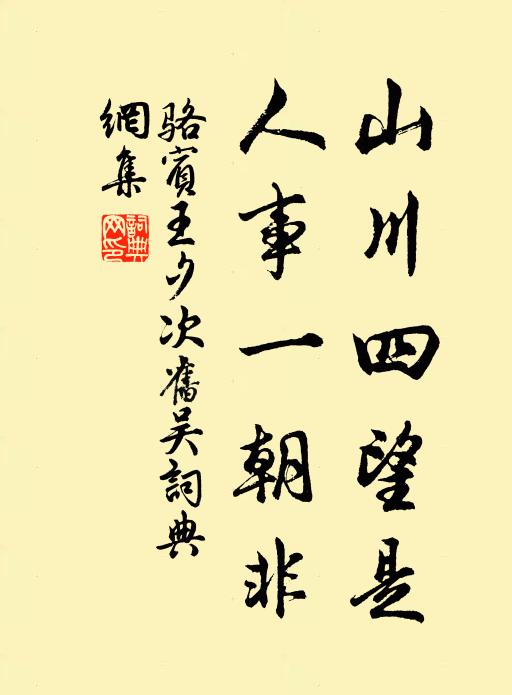 山川四望是
人事一朝非
骆宾王夕次舊吴詞典
網集
詞典网印